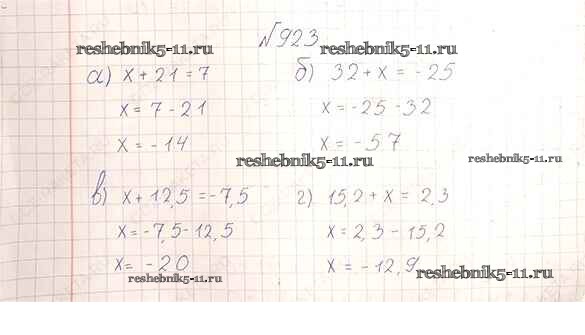 №923
reshebnik5-11.ru reshebnik5-11.ru
а) x + 21 = 7 б) 32 + x = -25
x = 7 - 21 x = -25 - 32
x = -14 x = -57
reshebnik5-11.ru reshebnik5-11.ru
в) x + 12,5 = -7,5 г) 15,2 + x = 2,3
x = -7,5 - 12,5 x = 2,3 - 15,2
x = -20 x = -12,9
reshebnik5-11.ru reshebnik5-11.ru